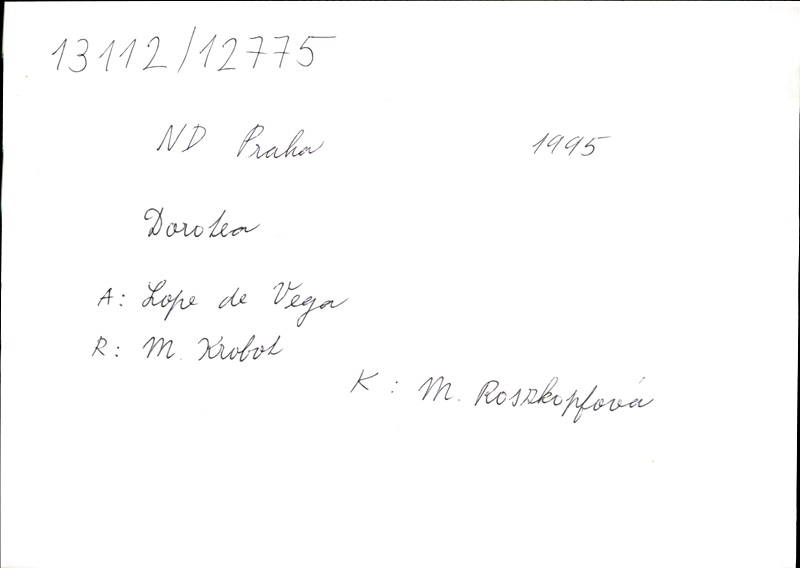 13112/12775
ND Praha 1995
Dorotea
A: Lope de Vega
R: M. Krobot
K: M. Roszkopfová